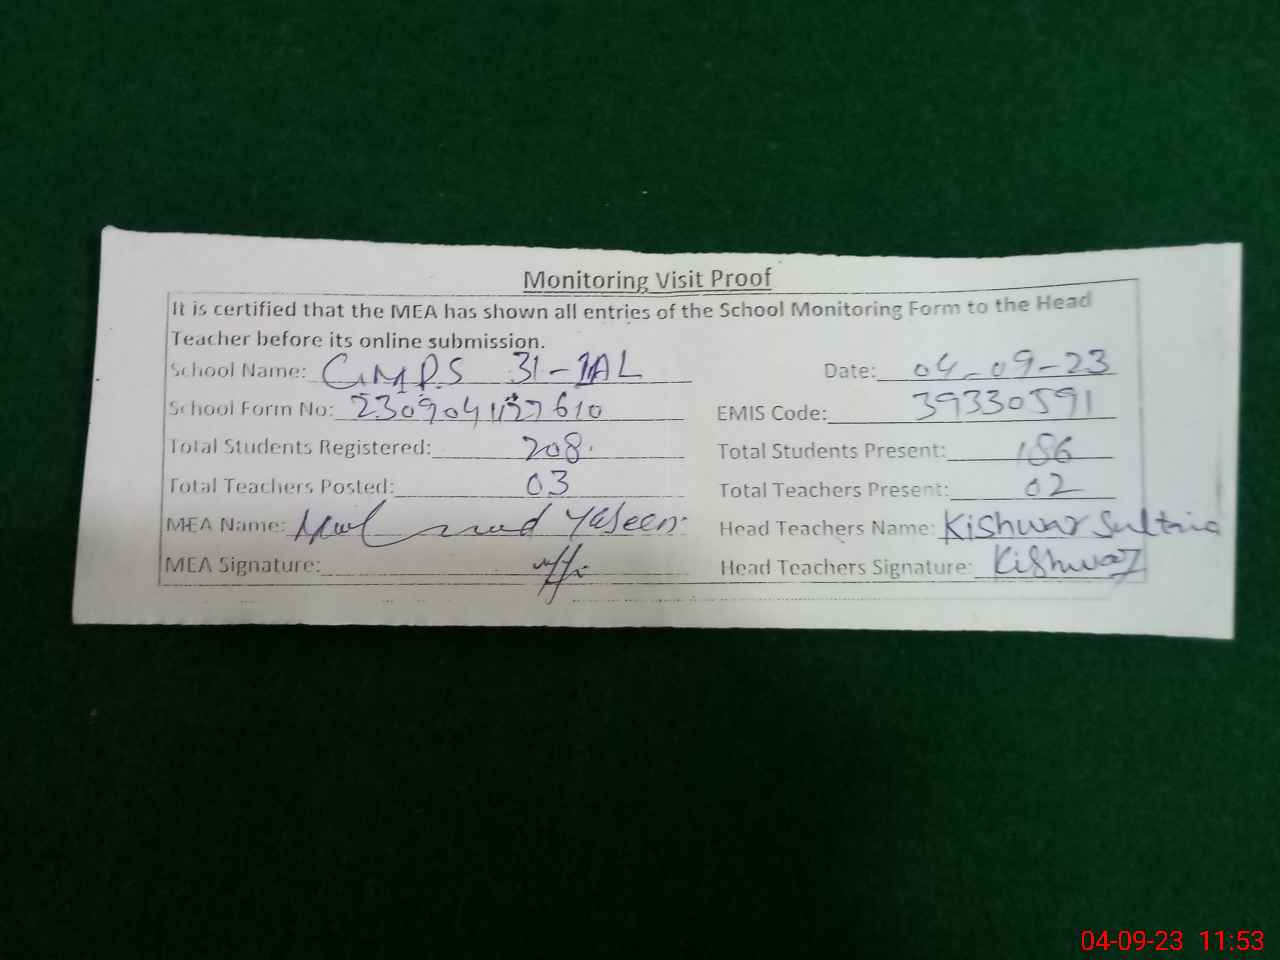 Monitoring Visit Proof
It is certified that the MEA has shown all entries of the School Monitoring Form to the Head
Teacher before its online submission.
School Name: GMPS 31-1AL Date: 04-09-23
School Form No: EMIS Code: 39330591
Total Students Registered: 208 Total Students Present: 186
Total Teachers Posted: 03 Total Teachers Present: 02
MEA Name: Yaseen Head Teachers Name: Kishwar Sultana
MEA Signature: Head Teachers Signature: Kishwar
04-09-23 11:53